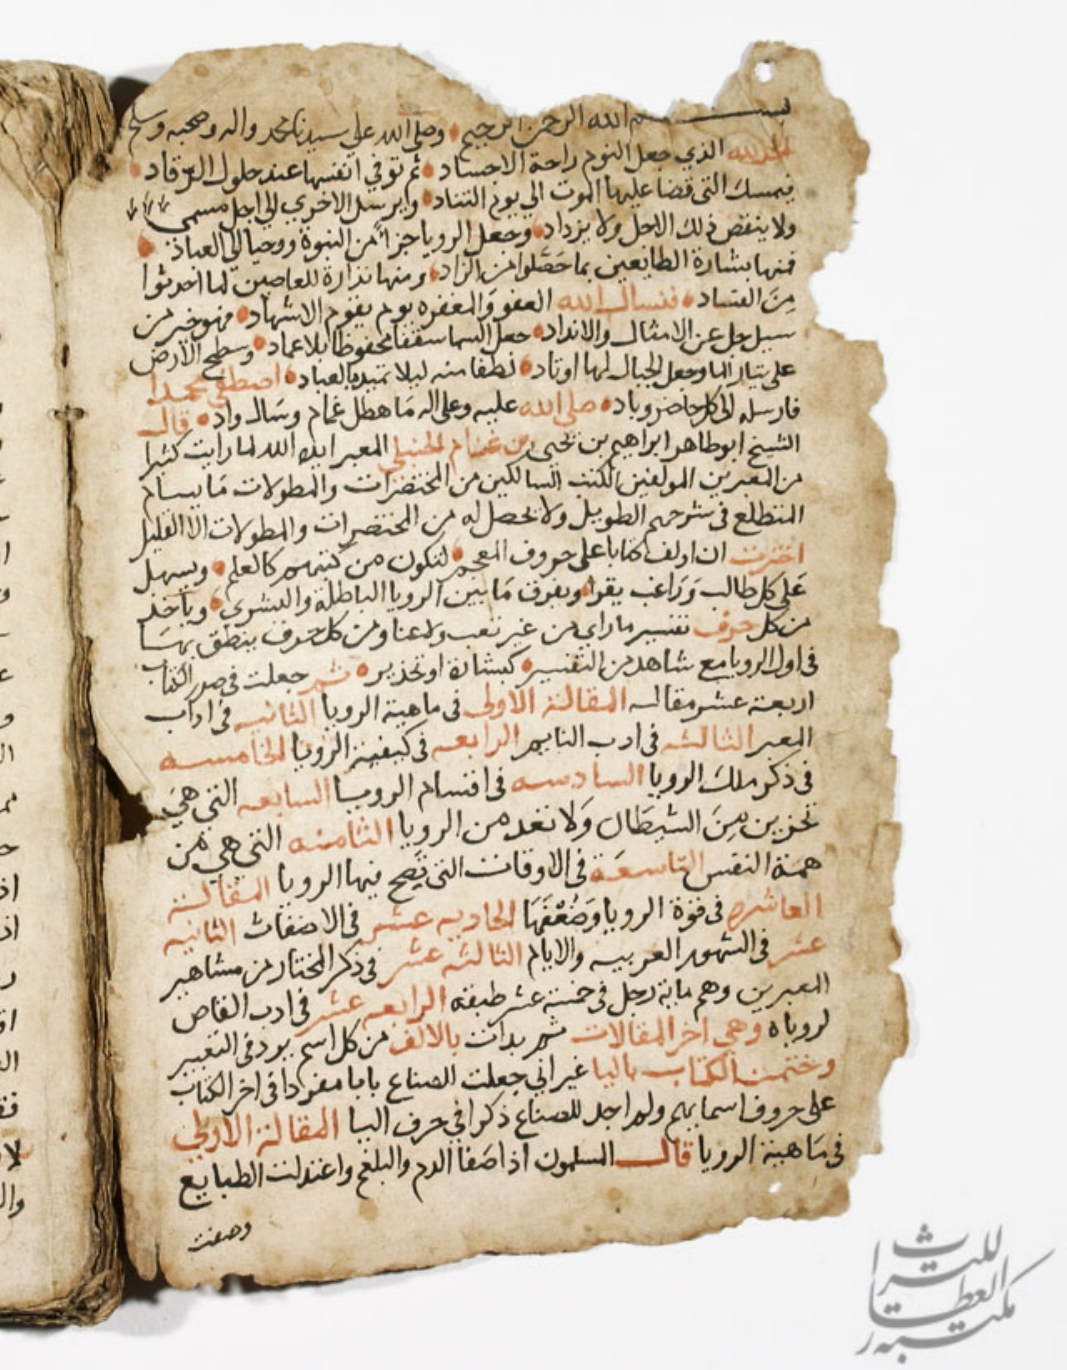 بسم الله الرحمن الرحيم وصلى الله على سيدنا محمد واله وصحبه وسلم
الحمد لله الذي جعل النوم راحة الاجساد ثم توفي انفسها عند حلول الرقاد
فيمسك التي قضا عليها الموت الي يوم التناد ويرسل الاخري الي اجل مسمى
ولا ينقص ذلك الاجل ولا يزداد وجعل الرويا جزأ من النبوة ووحيا الي العباد
فمنها بشارة الطايعين بما حصلوا من الزاد ومنها نذارة للعاصين لما احدثوا
من الفساد فنسال الله العفو والمغفره يوم يقوم الاشهاد فهو خير من
سيل جل عن الامثال والانداد جعل السما سقفا محفوظا بلا عماد وسطح الارض
على تيار الما وجعل الجبال لها اوتاد لطفا منه ليلا تميد بالعباد اصطفى محمدا
فارسله الى كل حاضر وباد صلى الله عليه وعلى اله ما هطل غمام وسال واد قال
الشيخ ابو طاهر ابراهيم بن يحيى بن غنام الحنبلي المعبر ايده الله لما رايت كثيرا
من المعبرين المولفين الكتب السالكين من المختصرات والمطولات ما يسام
المتطلع في شرحهم الطويل ولا يحصل له من المختصرات والمطولات الا القليل
اخترت ان اولف كتابا على حروف المعجم لتكون من كتبهم كالعلم ويسهل
على كل طالب وراغب يقرا ويفرق ما بين الرويا الباطلة والبشرى وياخذ
من كل حرف تفسير ما راي من غير تعب ولا عنا ومن كل حرف ينطق بها
في اول الرويا مع شاهد من التفسير كبشارة او تحذير ثم جعلت في صدر الكتاب
اربعة عشر مقاله المقالة الاولى في ماهية الرويا الثانيه في اداب
المعبر الثالثه في ادب النايم الرابعه في كيفية الرويا الخامسه
في ذكر ملك الرويا السادسه في اقسام الرويا السابعه التي هي
تحزين من الشيطان ولا تعد من الرويا الثامنه التي هي من
همة النفس التاسعة في الاوقات التي تصح فيها الرويا المقالة
العاشره في قوة الرويا وضعفها الحاديه عشر في الاضغاث الثانيه
عشر في الشهور العربيه والايام الثالثه عشر في ذكر المختار من مشاهير
المعبرين وهم ماية رجل في خمسة عشر طبقه الرابعه عشر في ادب القاص
لروياه وهي اخر المقالات ثم بدات بالالف من كل اسم يرد في التعبير
وختمت الكتاب باليا غير اني جعلت للصناع بابا مفردا في اخر الكتاب
على حروف اسمايهم ولم اجد للصناع ذكرا في حرف اليا المقالة الاولى
في ماهية الرويا قال المسلمون اذا صفا الدم والبلغم واعتدلت الطبايع
وصفت
مكتبة العطار للتراث